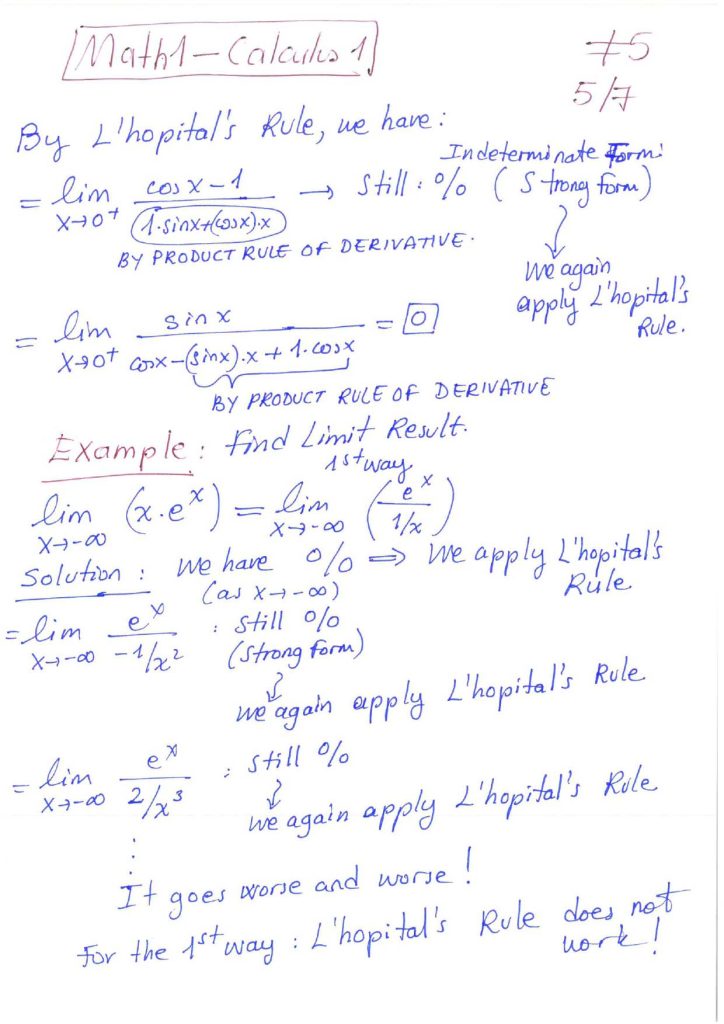 Math1 - Calculus 1
#5
5/7
By L'hopital's Rule, we have:
Indeterminate Form:
= lim x→0⁺ (cosx - 1)/(1·sinx+(cosx)·x) → still : 0/0 (Strong form)
BY PRODUCT RULE OF DERIVATIVE.
We again
apply L'hopital's
Rule.
= lim x→0⁺ sinx/(cosx-(sinx)·x + 1·cosx) = 0
BY PRODUCT RULE OF DERIVATIVE
Example: Find Limit Result.
1st way
lim x→-∞ (x·eˣ) = lim x→-∞ (eˣ/(1/x))
Solution : We have 0/0 ⇒ We apply L'hopital's
(as x→-∞) Rule
= lim x→-∞ eˣ/(-1/x²) : still 0/0
(Strong form)
We again apply L'hopital's Rule
= lim x→-∞ eˣ/(2/x³) : still 0/0
We again apply L'hopital's Rule
⋮
It goes worse and worse!
For the 1st way : L'hopital's Rule does not
work!